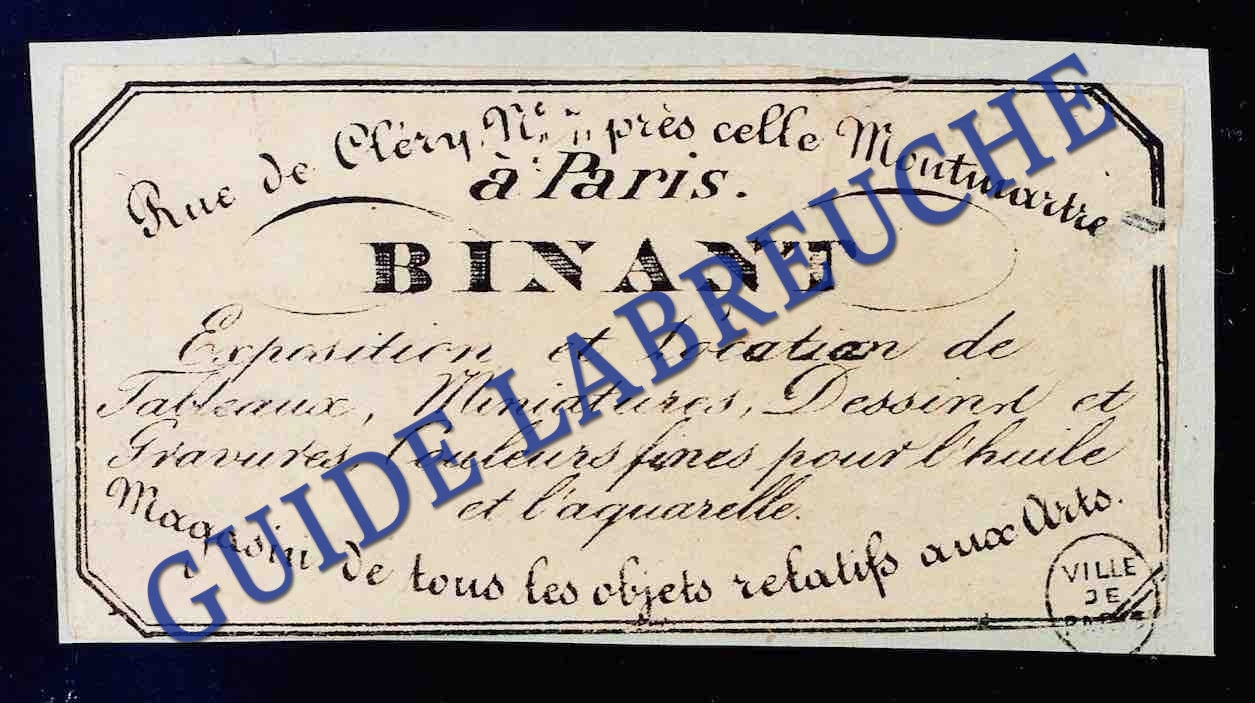 Rue de Cléry, N° près celle Montmartre
à Paris.
BINANT
Exposition et Location de
Tableaux, Miniatures, Dessins et
Gravures, Couleurs fines pour l'huile
et l'aquarelle.
Magasin de tous les objets relatifs aux Arts.
VILLE
DE
PARIS
GUIDE LABREUCHE